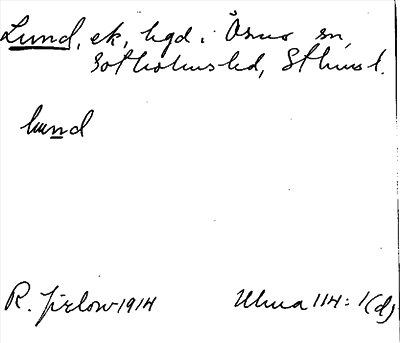 Lund, ek, hgd i Ösmo sn,
Sotholms hd, Sthms l.
lund
R. Jirlow 1914 Ulma 114:1(d)